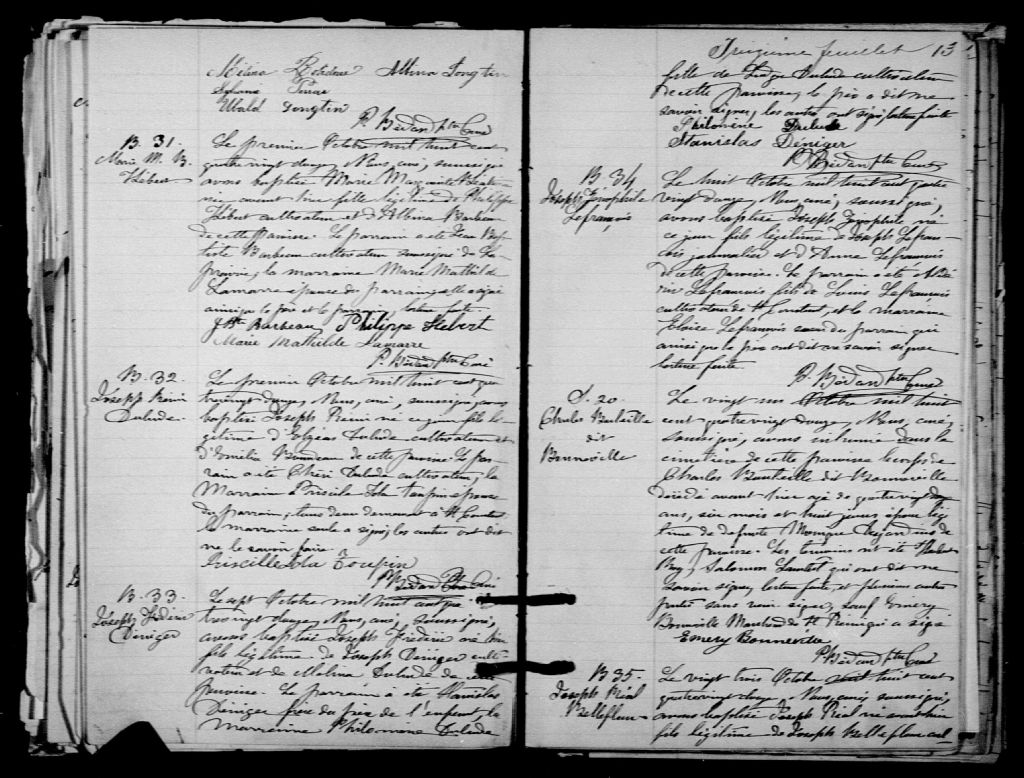 Mélina Albina Longtin
Ubald Longtin
P. Bédard Ptre Curé
B. 31
Marie M. B.
Hébert
Le premier Octobre mil huit cent
quatre vingt douze, Nous, curé, soussigné
avons baptisé Marie Marguerite
née avant hier fille légitime de Philippe
Hébert cultivateur et d'Albina Barbeau
de cette Paroisse. Le parrain a été Jean Bap-
tiste Barbeau cultivateur soussigné de La-
prairie, la marraine Marie Mathilde
Lamarre épouse du parrain
ainsi que le père et le parrain, lecture faite.
J. Bte Barbeau Philippe Hebert
Marie Mathilde Lamarre
P. Bédard Ptre Curé
B. 32
Joseph Rémi
Dulude
Le premier Octobre mil huit cent qua-
tre vingt douze, Nous, curé, soussigné, avons
baptisé Joseph Rémi né ce jour fils lé-
gitime d'Elzéar Dulude cultivateur et
d'Emilia de cette paroisse. Le par-
rain a été Dulude cultivateur, la
Marraine Priscile Lola Toupin épouse
du parrain, tous deux demeurant à St Constant
la marraine seule a signé, les autres ont dit
ne le savoir faire.
Priscille Lola Toupin
P. Bédard Ptre Curé
B. 33
Joseph Frédéric
Déniger
Le sept Octobre mil huit cent qua-
tre vingt douze, Nous, curé, soussigné,
avons baptisé Joseph Frédéric né hier
fils légitime de Joseph Déniger culti-
vateur et de Malina Dulude de cette
paroisse. Le parrain a été Stanislas
Déniger frère du père de l'enfant la
marraine Philomène Dulude
Treizième feuillet 13
fille de Dulude cultivateur
de cette paroisse, le père a dit ne
savoir signer, les autres ont signé, lecture faite
Philomène Dulude
Stanislas Déniger
P. Bédard Ptre Curé
B. 34
Joseph Théophile
Lefrançois
Le huit Octobre mil huit cent quatre
vingt douze, Nous, curé, soussigné,
avons baptisé Joseph Théophile né
ce jour fils légitime de Joseph Lefran-
çois journalier et d'Anna Lefrançois
de cette paroisse. Le parrain a été Aldé-
ric Lefrançois fils de Louis Lefrançois
cultivateur de St Constant, et la marraine
Eloïse Lefrançois soeur du parrain qui
ainsi que le père ont dit ne savoir signer
lecture faite.
P. Bédard Ptre Curé
S. 20
Charles Bouteille
dit
Bonneville
Le vingt un Octobre mil huit
cent quatre vingt douze, Nous, curé,
soussigné, avons inhumé dans le
cimetière de cette paroisse le corps de
Charles Bouteille dit Bonneville
décédé avant hier âgé de quatre vingt
ans, six mois et huit jours, époux légi-
time de defunte Monique
cette paroisse. Les témoins ont été
Roy, Salomon qui ont dit ne
savoir signer, lecture faite, et plusieurs autres
sans savoir signer, sauf Emery
Bonneville de St Rémi qui a signé
Emery Bonneville
P. Bédard Ptre Curé
B. 35
Joseph Réal
Bellefleur
Le vingt trois Octobre mil huit cent
quatre vingt douze, Nous, curé, soussigné,
avons baptisé Joseph Réal né avant hier
fils légitime de Joseph Bellefleur cul-